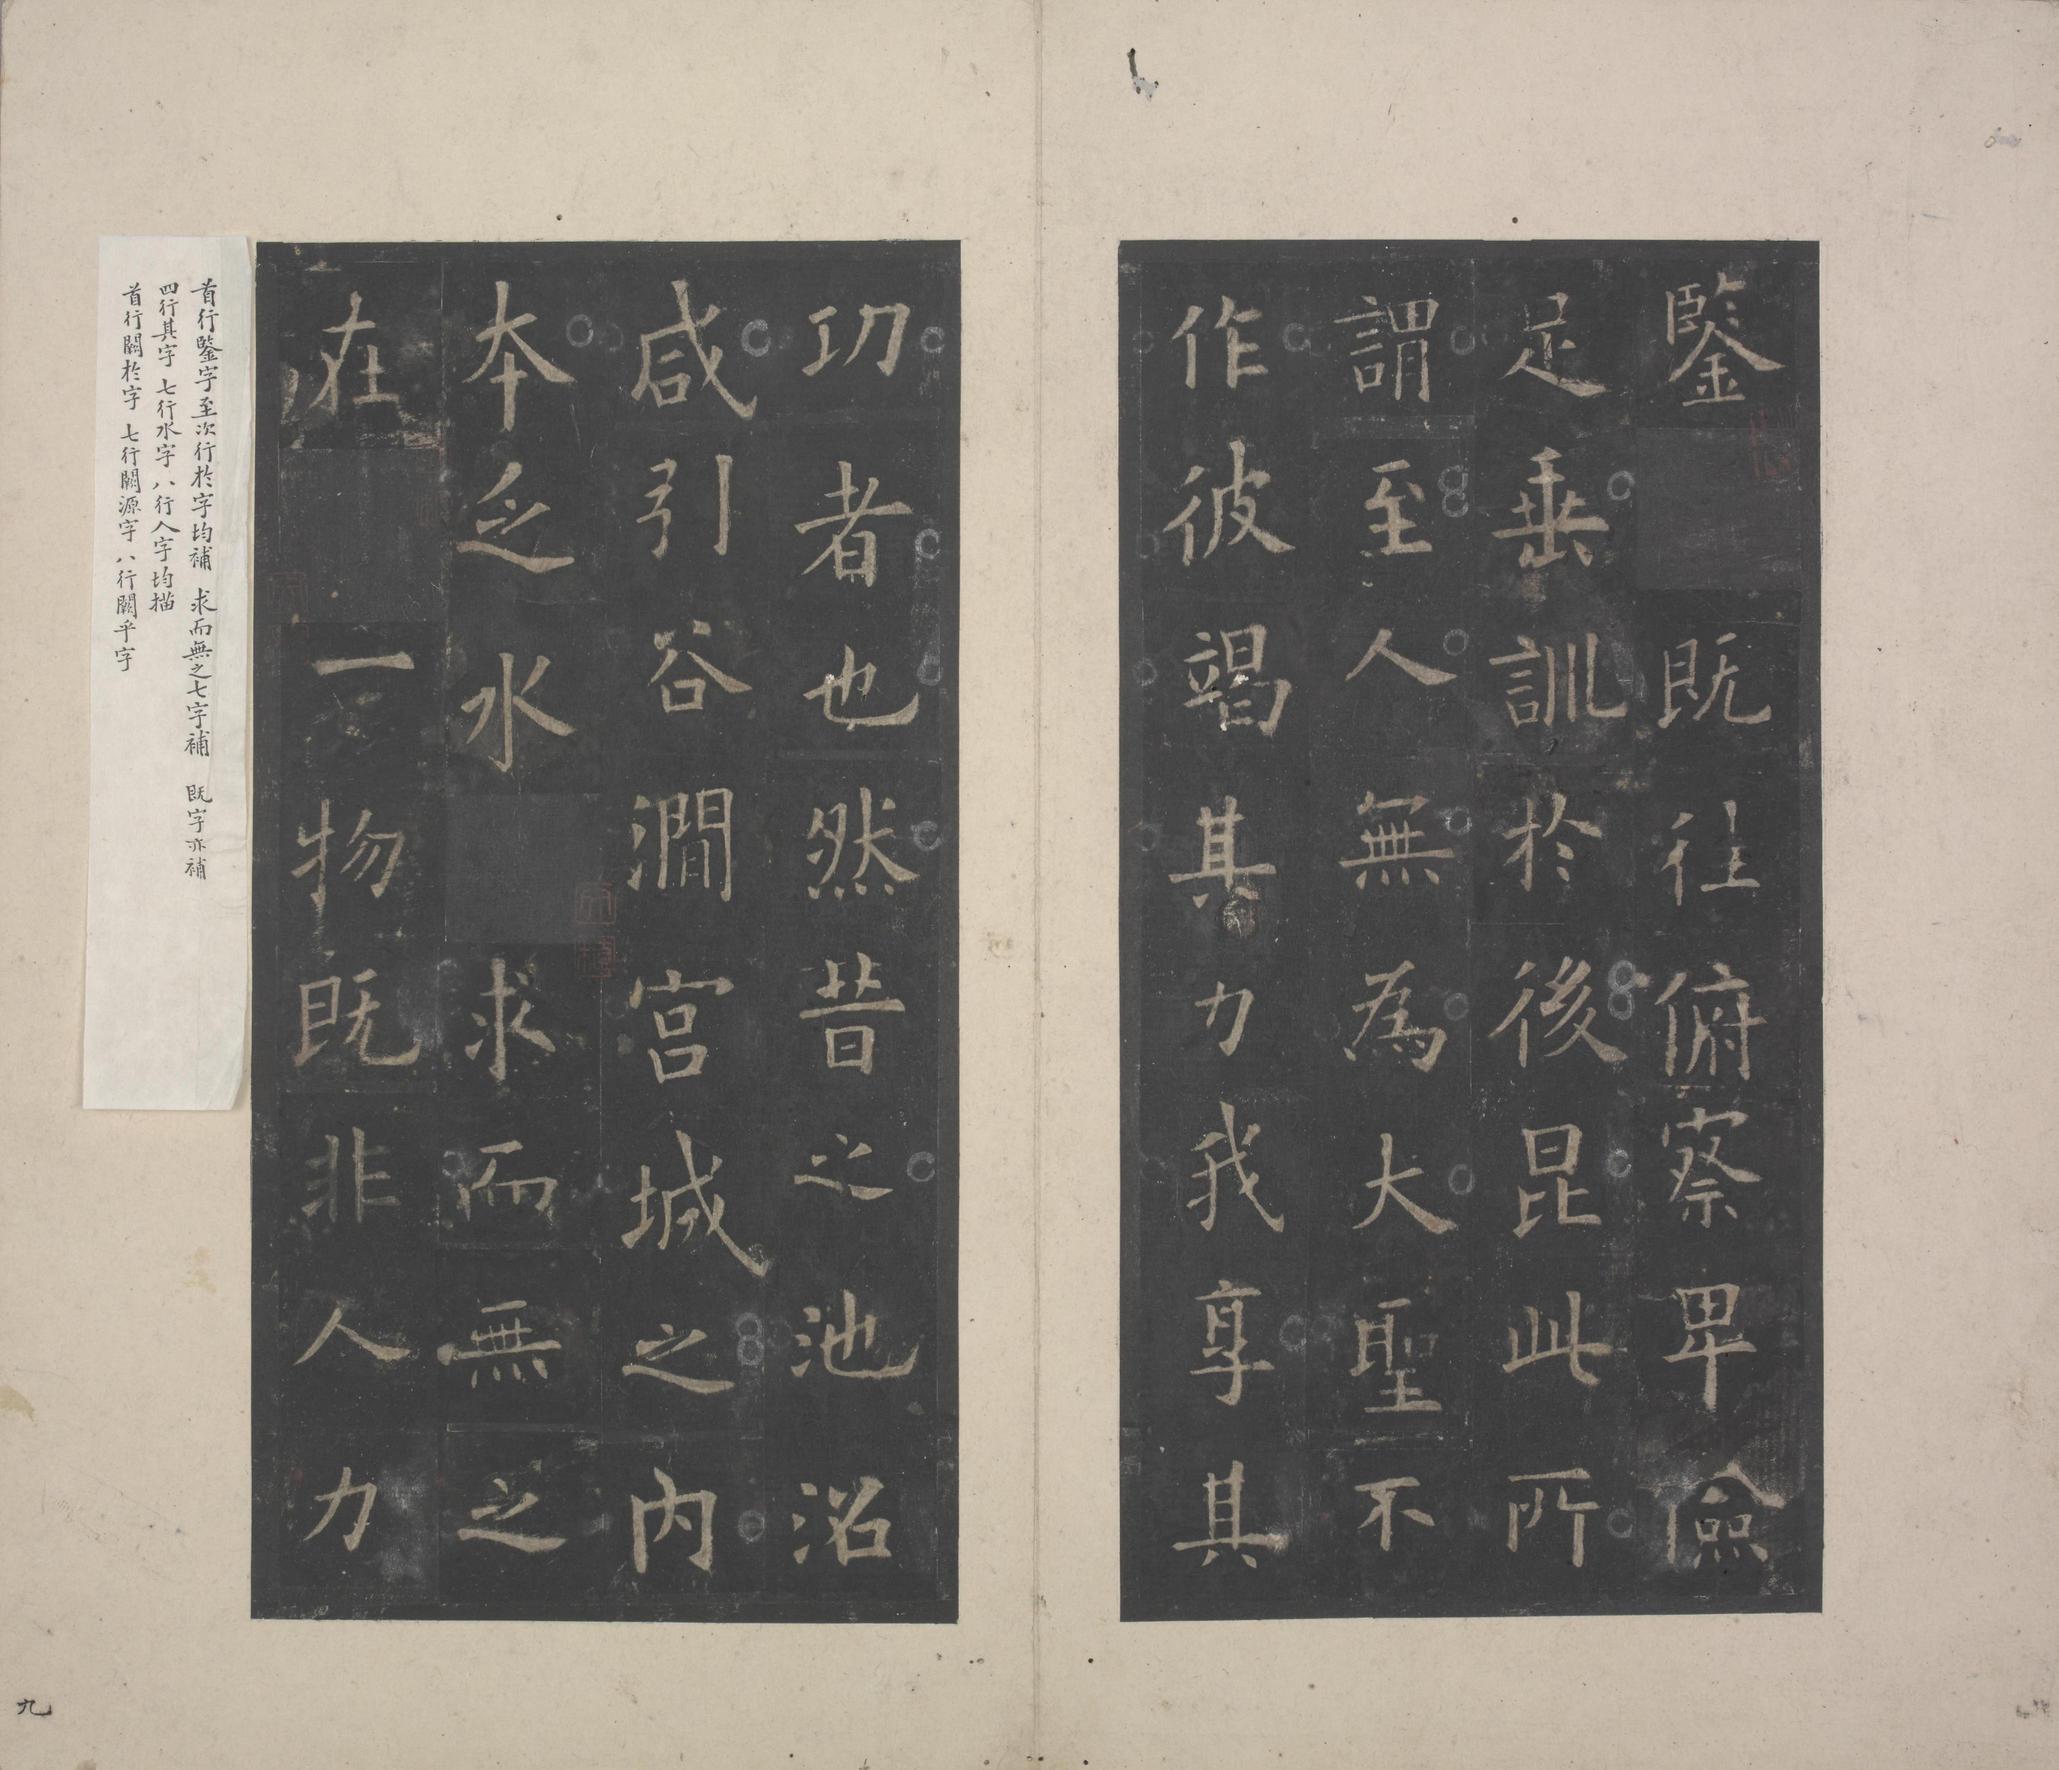 鍳既往俯察卑儉
足垂訓於後昆此所
謂至人無為大聖不
作彼竭其力我享其
功者也然昔之池沼
咸引谷澗宮城之内
本乏水求而無之
在一物既非人力
首行鍳字至次行於字均補 求而無之七字補 既字亦補
四行其字 七行水字 八行人字均描
首行闕於字 七行闕源字 八行闕乎字
九